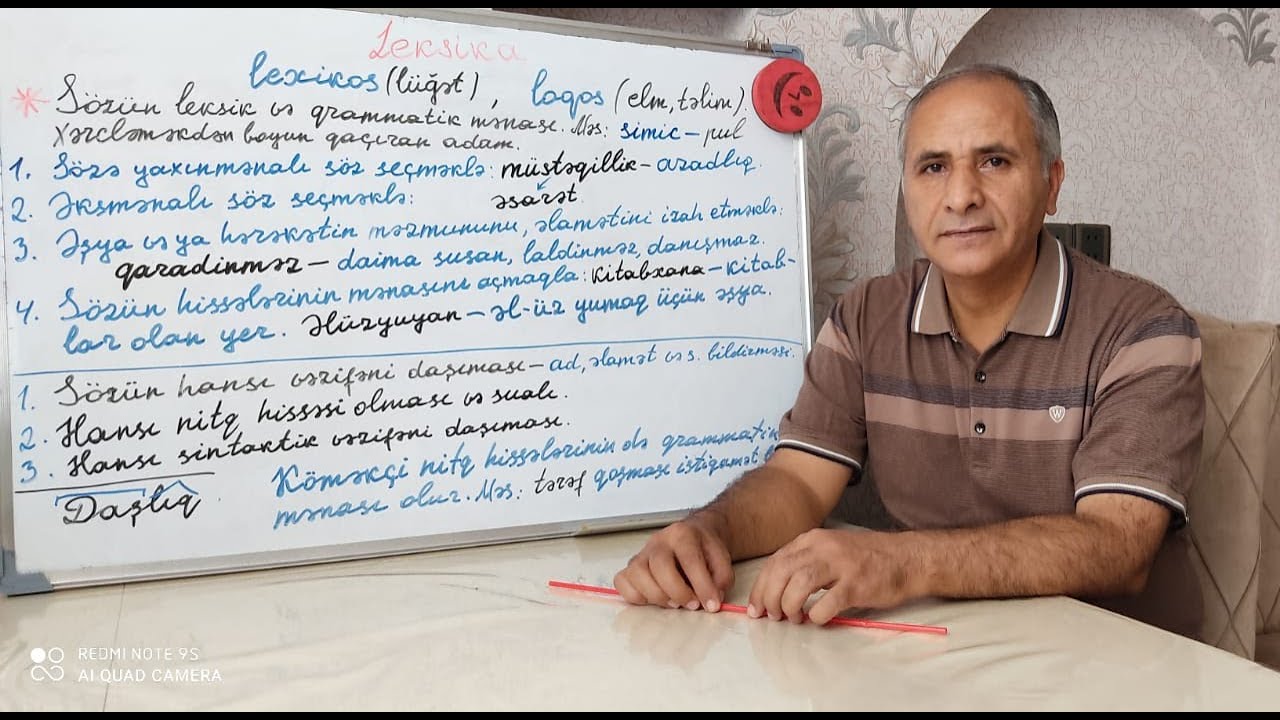 Leksika
lexikos (lüğət), loqos (elm, təlim).
* Sözün leksik və qrammatik mənası. Məs: simic – pul
xərcləməkdən boyun qaçıran adam.
1. Sözə yaxınmənalı söz seçməklə: müstəqillik – azadlıq.
2. Əksmənalı söz seçməklə: əsarət.
3. Əşya və ya hərəkətin məzmununu, əlamətini izah etməklə:
qaradinməz – daima susan, laldinməz, danışmaz.
4. Sözün hissələrinin mənasını açmaqla: kitabxana – kitab-
lar olan yer. Əlüzyuyan – əl-üz yumaq üçün əşya.
1. Sözün hansı vəzifəni daşıması – ad, əlamət və s. bildirməsi.
2. Hansı nitq hissəsi olması və sualı.
3. Hansı sintaktik vəzifəni daşıması.
Daşlıq
Köməkçi nitq hissələrinin də qrammatik
mənası olur. Məs: tərəf qoşması istiqamət
W
REDMI NOTE 9S
AI QUAD CAMERA